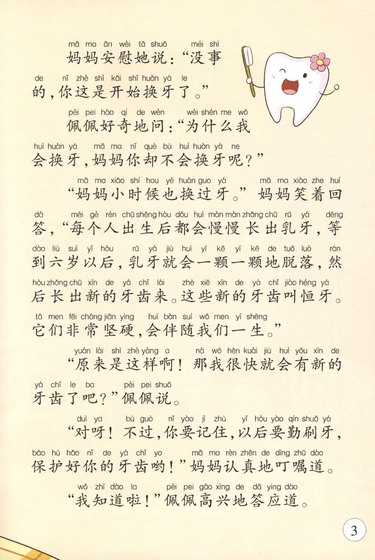 mā ma ān wèi tā shuō méi shì
妈妈安慰她说：“没事
de nǐ zhè shì kāi shǐ huàn yá le
的，你这是开始换牙了。”
pèi pei hào qí de wèn wèi shén me wǒ
佩佩好奇地问：“为什么我
huì huàn yá mā ma nǐ què bú huì huàn yá ne
会换牙，妈妈你却不会换牙呢？”
mā ma xiǎo shí hou yě huàn guo yá mā ma xiào zhe huí
“妈妈小时候也换过牙。”妈妈笑着回
dá měi gè rén chū shēng hòu dōu huì màn màn zhǎng chū rǔ yá děng
答，“每个人出生后都会慢慢长出乳牙，等
dào liù suì yǐ hòu rǔ yá jiù huì yì kē yì kē de tuō luò rán
到六岁以后，乳牙就会一颗一颗地脱落，然
hòu zhǎng chū xīn de yá chǐ lái zhè xiē xīn de yá chǐ jiào héng yá
后长出新的牙齿来。这些新的牙齿叫恒牙。
tā men fēi cháng jiān yìng huì bàn suí wǒ men yì shēng
它们非常坚硬，会伴随我们一生。”
yuán lái shì zhè yàng a nà wǒ hěn kuài jiù huì yǒu xīn de
“原来是这样啊！那我很快就会有新的
yá chǐ le ba pèi pei shuō
牙齿了吧？”佩佩说。
duì ya bú guò nǐ yào jì zhù yǐ hòu yào qín shuā yá
“对呀！不过，你要记住，以后要勤刷牙，
bǎo hù hǎo nǐ de yá chǐ yo mā ma rèn zhēn de dīng zhǔ dào
保护好你的牙齿哟！”妈妈认真地叮嘱道。
wǒ zhī dào la pèi pei gāo xìng de dā yìng dào
“我知道啦！”佩佩高兴地答应道。
3